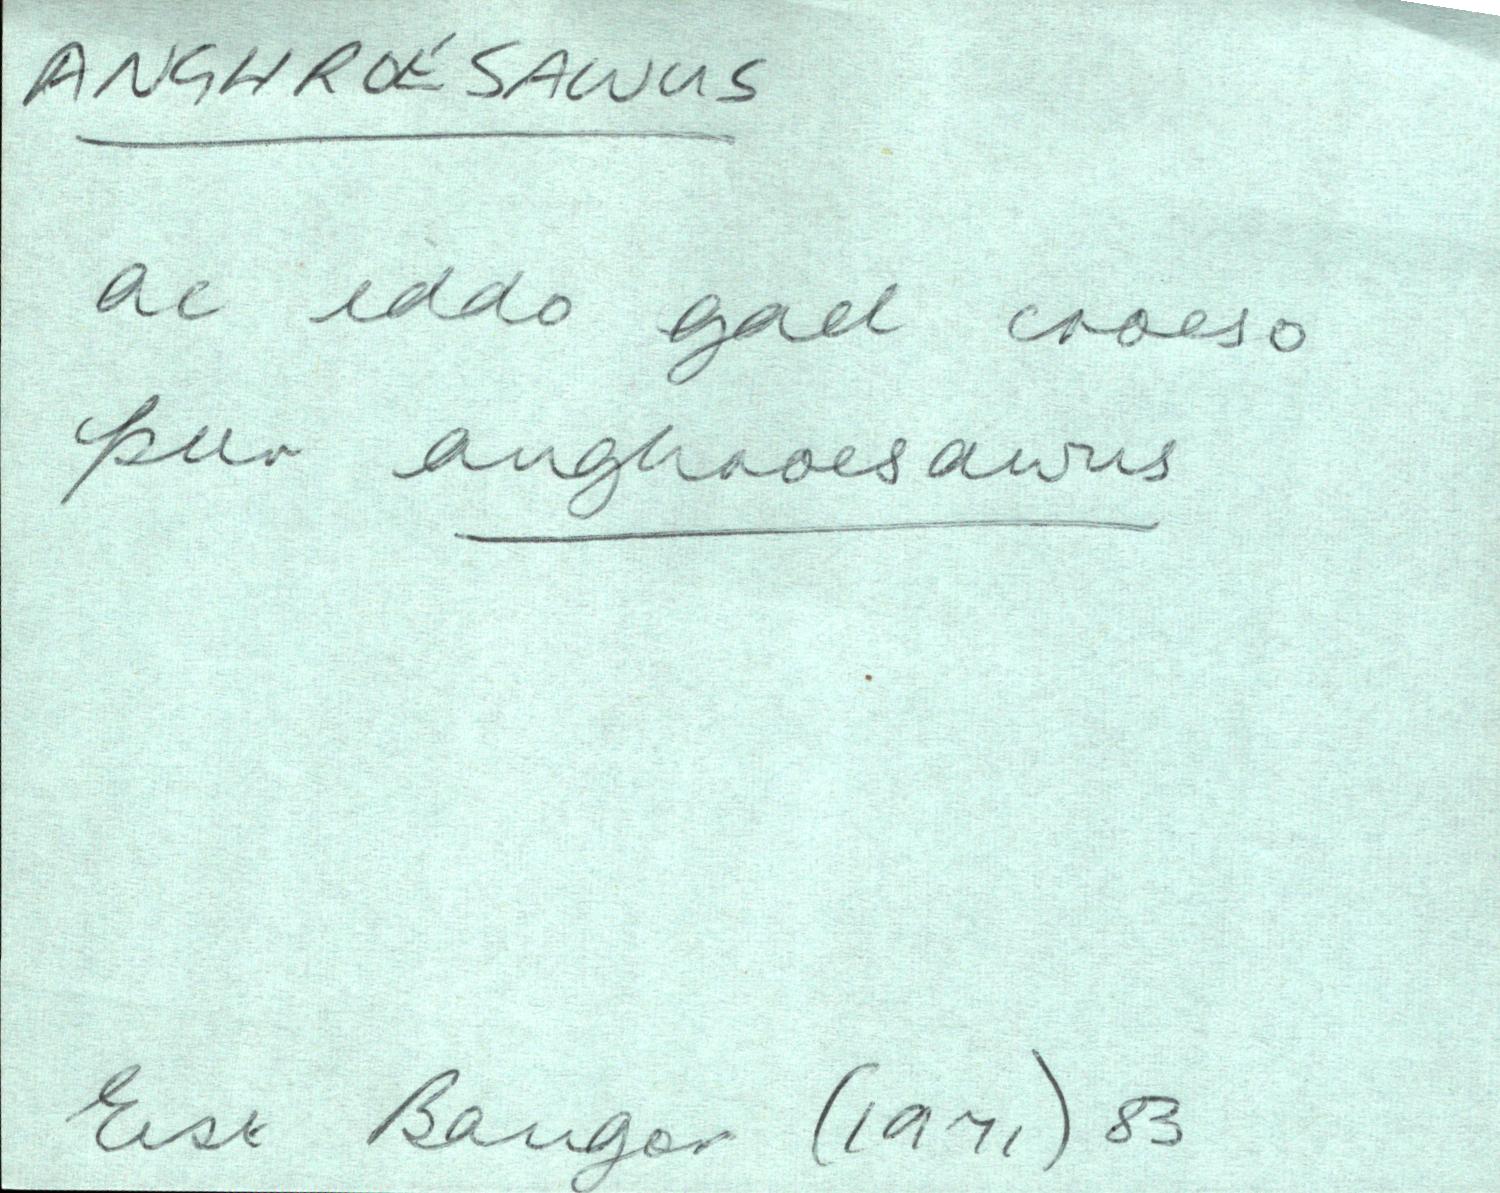 ANGHROÉSAWUS
ac iddo gael croeso
pur anghroesawus
Eist Bangor (1971) 83